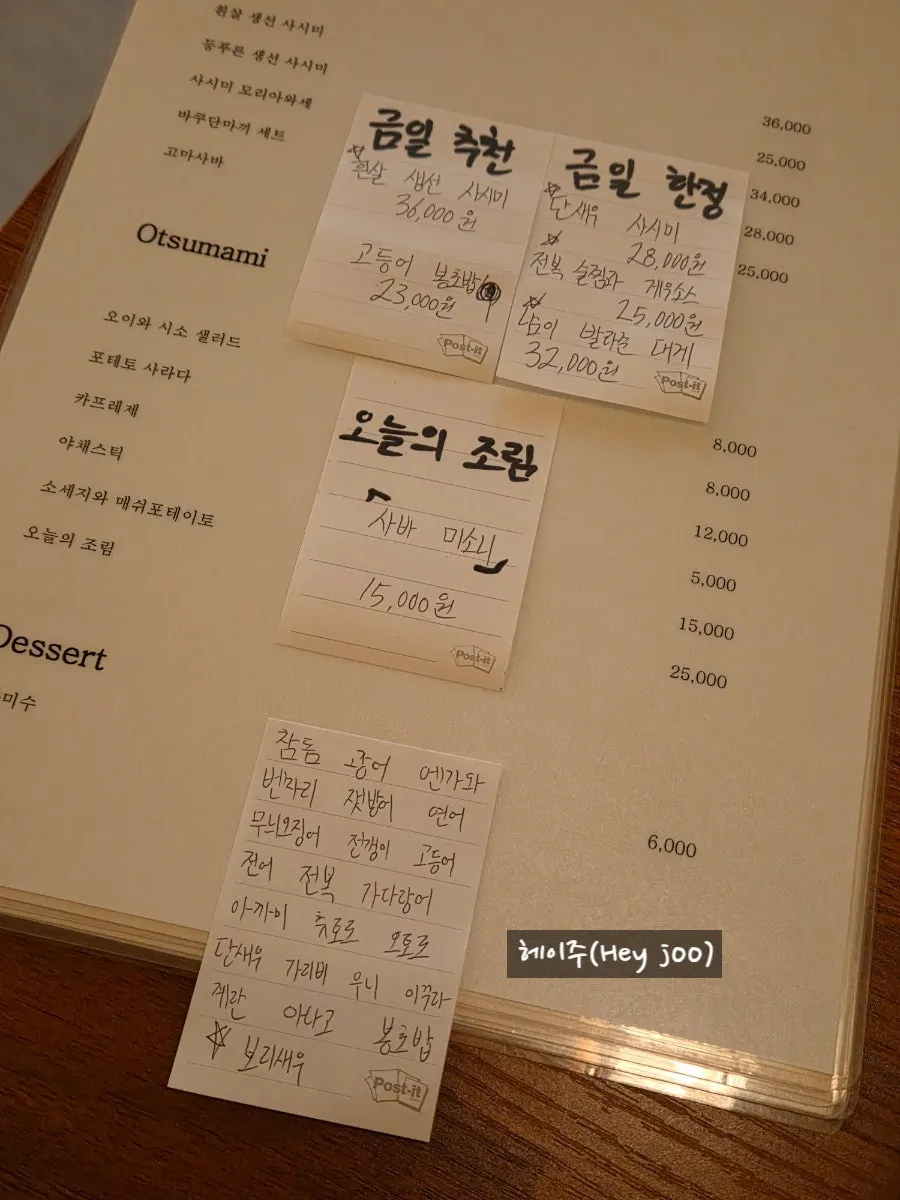 흰살 생선 사시미
등푸른 생선 사시미
사시미 모리아와세
바쿠단마끼 세트
고마사바
36,000
25,000
34,000
28,000
25,000
금일 추천
☆흰살 생선 사시미
36,000원
고등어 봉초밥
23,000원
Post-it
금일 한정
☆단새우 사시미
28,000원
☆전복 술찜과 게우소스
25,000원
☆남이 발라준 대게
32,000원
Post-it
Otsumami
오이와 시소 샐러드 8,000
포테토 사라다 8,000
카프레제 12,000
야채스틱 5,000
소세지와 매쉬포테이토 15,000
오늘의 조림 25,000
오늘의 조림
「사바 미소니」
15,000원
Post-it
Dessert
미수 6,000
참돔 고종어 엔가와
벤자리 잿방어 연어
무늬오징어 전갱이 고등어
전어 전복 가다랑어
아까미 츄로로 오로로
단새우 가리비 우니 이꾸라
계란 아나고 봉초밥
☆ 보리새우
Post-it
헤이주(Hey joo)